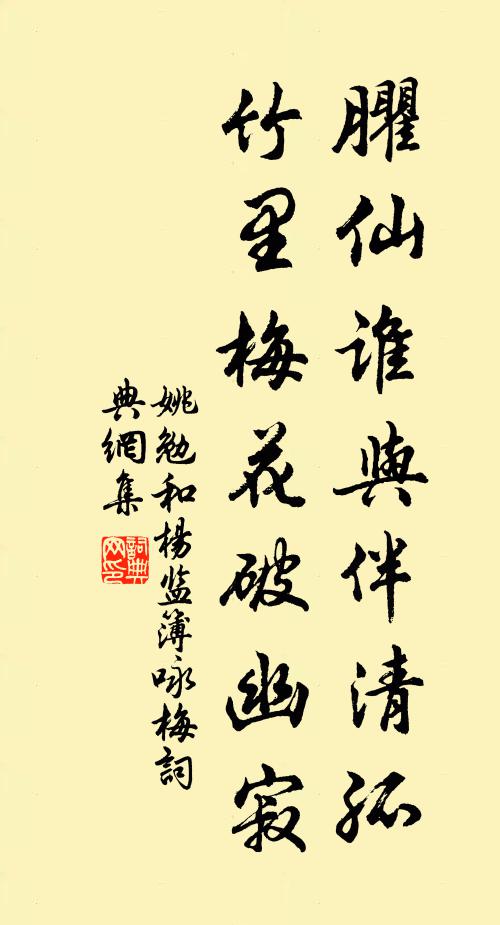 臞仙誰與伴清孤
竹里梅花破幽寂
姚勉和楊监簿咏梅詞
典網集
詞典
网印